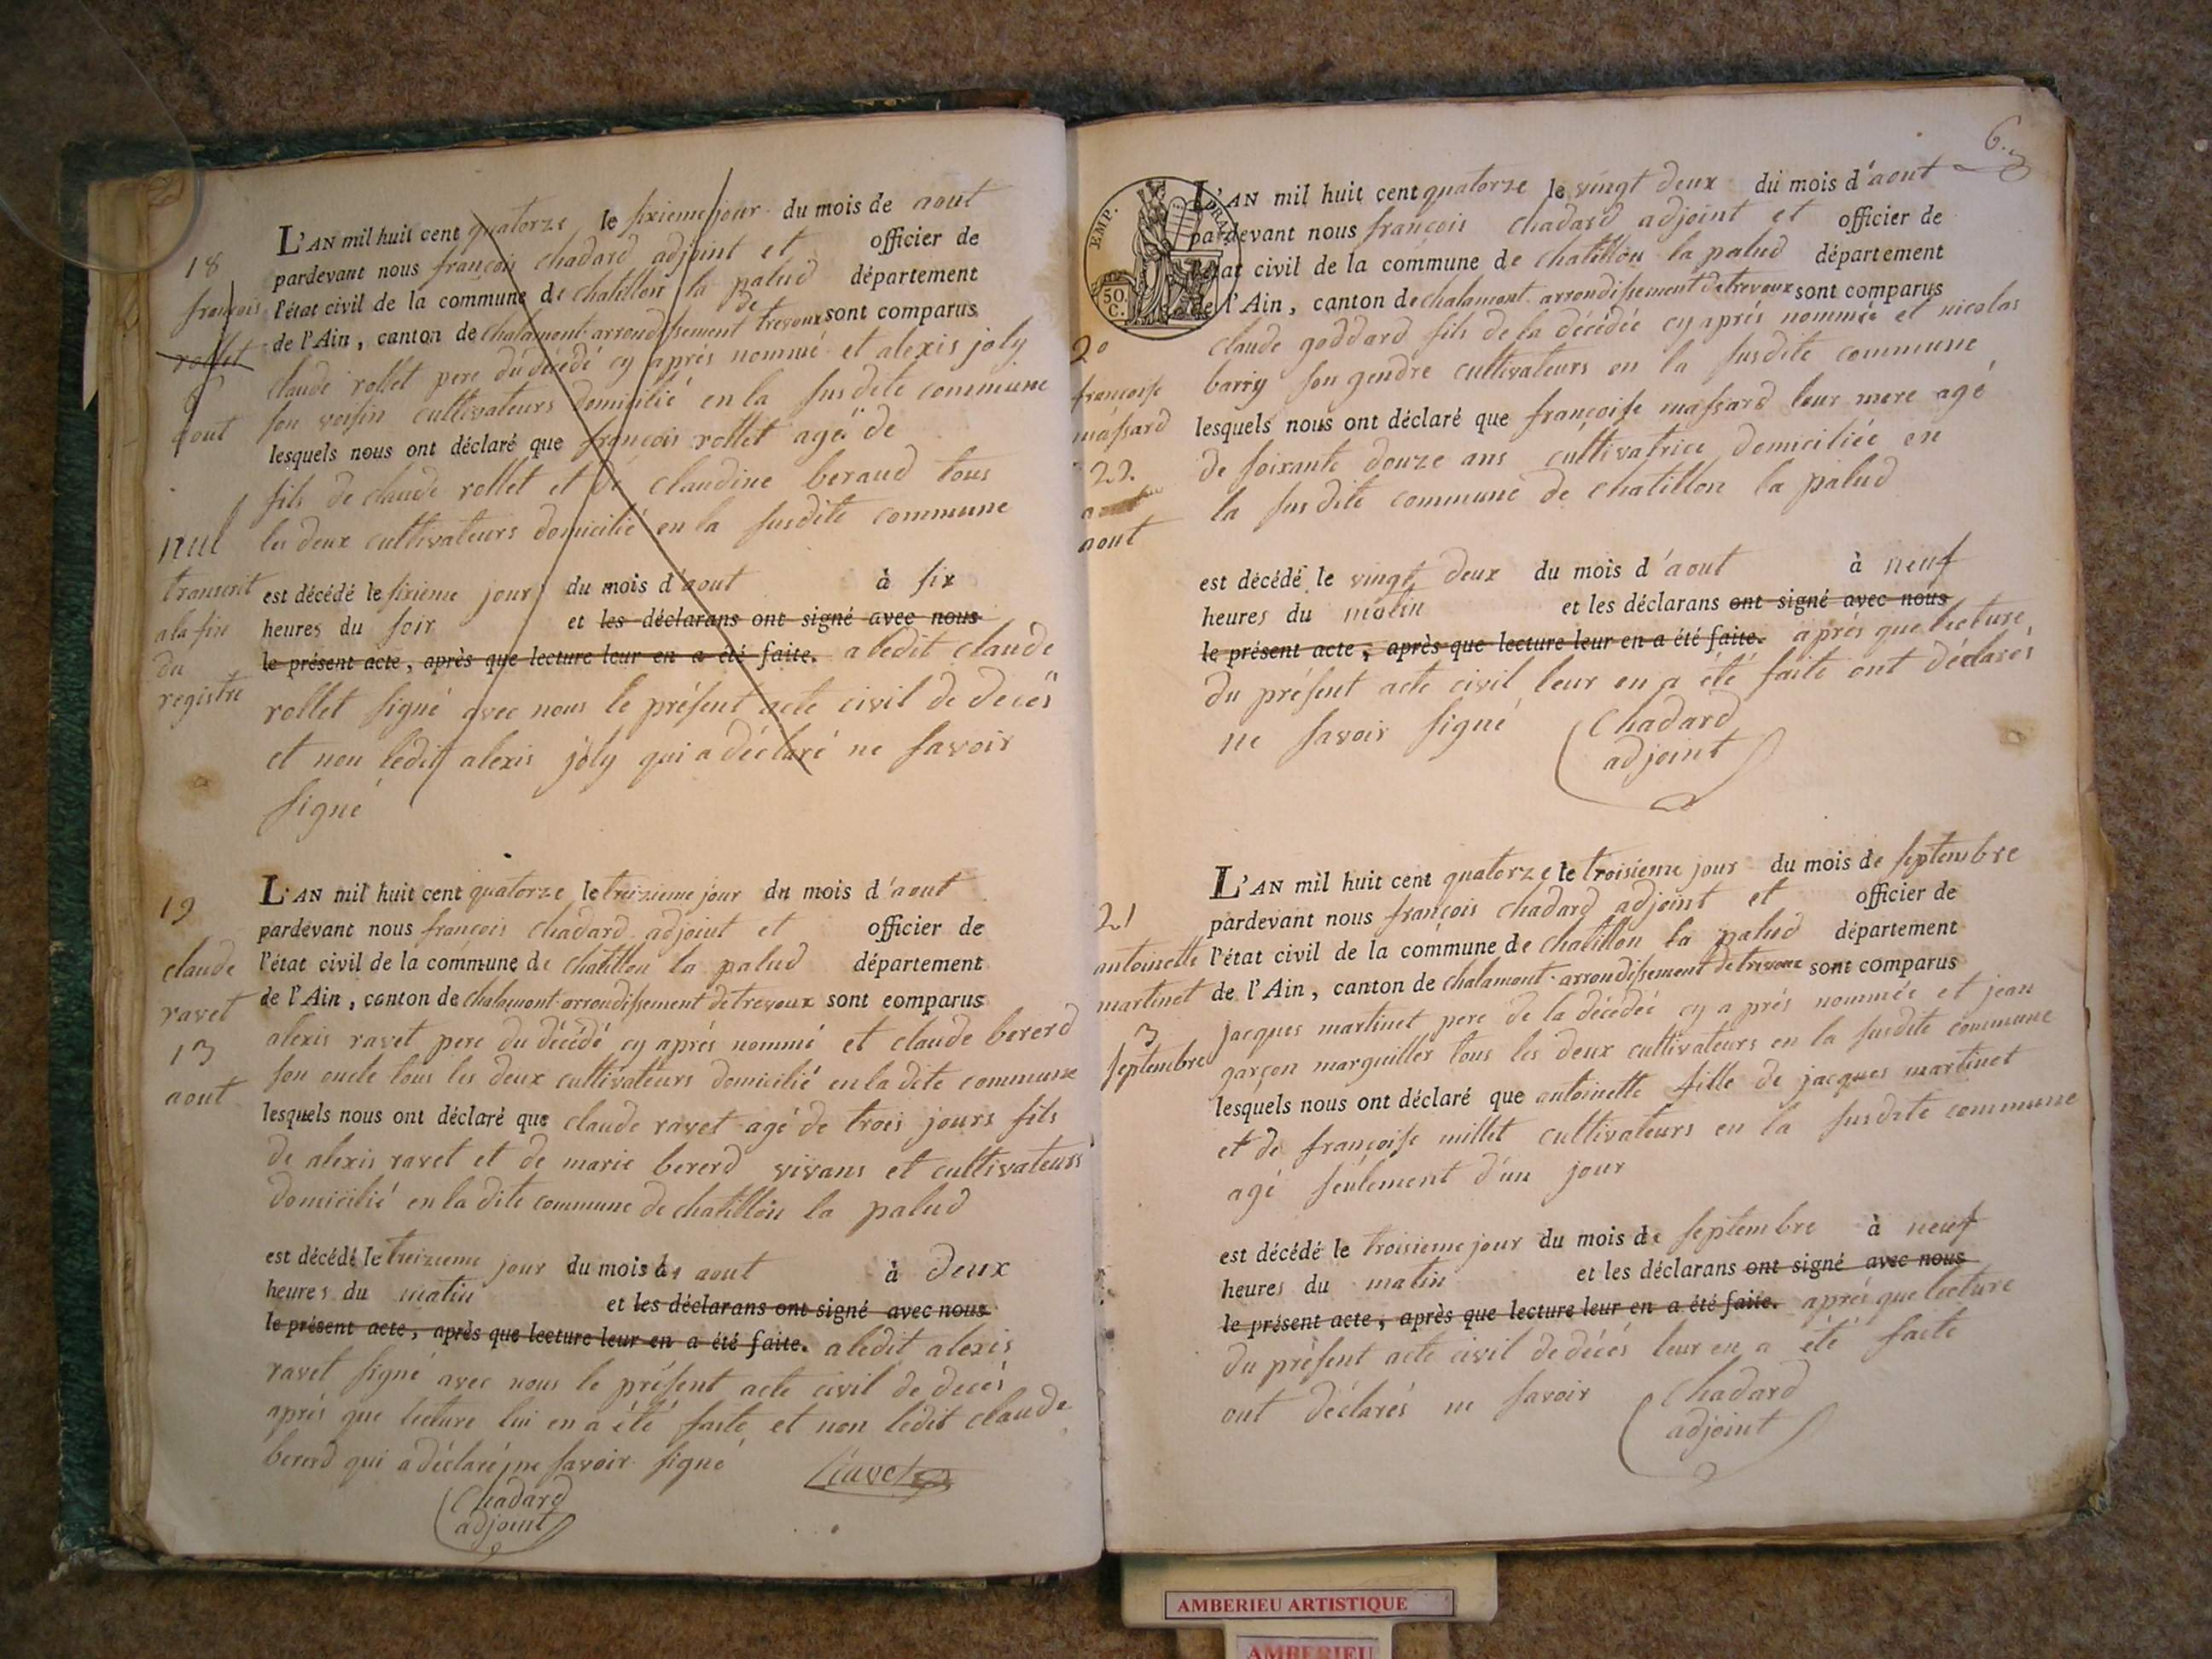 18
françois
rollet
6
aout
nul
transcrit
a la fin
du
registre
L'AN mil huit cent quatorze le sixieme jour du mois de aout
pardevant nous françois chadard adjoint et officier de
l'état civil de la commune de chatillon la palud département
de l'Ain, canton de chalamont arrondissement de trevoux sont comparus
claude rollet pere du décédé cy aprés nommé et alexis joly
son voisin cultivateurs domicilié en la susdite commune
lesquels nous ont déclaré que françois rollet agé de
fils de claude rollet et de claudine beraud tous
les deux cultivateurs domicilié en la susdite commune
est décédé le sixieme jour du mois d'aout à six
heures du soir et les déclarans ont signé avec nous
le présent acte, après que lecture leur en a été faite. a ledit claude
rollet signé avec nous le présent acte civil de decés
et non ledit alexis joly qui a déclaré ne savoir
signé
19
claude
ravet
13
aout
L'AN mil huit cent quatorze le treizieme jour du mois d'aout
pardevant nous françois chadard adjoint et officier de
l'état civil de la commune de chatillon la palud département
de l'Ain, canton de chalamont arrondissement de trevoux sont comparus
alexis ravet pere du décédé cy aprés nommé et claude bererd
son oncle tous les deux cultivateurs domicilié en la dite commune
lesquels nous ont déclaré que claude ravet agé de trois jours fils
de alexis ravet et de marie bererd vivans et cultivateurs
domicilié en la dite commune de chatillon la palud
est décédé le treizieme jour du mois de aout à deux
heures du matin et les déclarans ont signé avec nous
le présent acte, après que lecture leur en a été faite. a ledit alexis
ravet signé avec nous le présent acte civil de decés
aprés que lecture lui en a été faite et non ledit claude
bererd qui a déclaré ne savoir signé
Chadard
adjoint
6.
EMP. DRAL.
50.
C.
20
françoise
massard
22.
aout
L'AN mil huit cent quatorze le vingt deux du mois d'aout
pardevant nous françois chadard adjoint et officier de
l'état civil de la commune de chatillon la palud département
de l'Ain, canton de chalamont arrondissement de trevoux sont comparus
claude goddard fils de la décédée cy aprés nommée et nicolas
barriy son gendre cultivateurs en la susdite commune
lesquels nous ont déclaré que françoise massard leur mere agé
de soixante douze ans cultivatrice domiciliée en
la susdite commune de chatillon la palud
est décédé le vingt deux du mois d'aout à neuf
heures du matin et les déclarans ont signé avec nous
le présent acte, après que lecture leur en a été faite. aprés que lecture
du présent acte civil leur en a été faite ont déclarés
ne savoir signé Chadard
adjoint
21
antoinette
martinet
3
septembre
L'AN mil huit cent quatorze le troisieme jour du mois de septembre
pardevant nous françois chadard adjoint et officier de
l'état civil de la commune de chatillon la palud département
de l'Ain, canton de chalamont arrondissement de trevoux sont comparus
jacques martinet pere de la décédée cy a prés nommée et jean
garçon marguiller tous les deux cultivateurs en la susdite commune
lesquels nous ont déclaré que antoinette fille de jacques martinet
et de françoise millet cultivateurs en la susdite commune
agé seulement d'un jour
est décédé le troisieme jour du mois de septembre à neuf
heures du matin et les déclarans ont signé avec nous
le présent acte, après que lecture leur en a été faite. aprés que lecture
du présent acte civil de décés leur en a été faite
ont déclarés ne savoir Chadard
adjoint
AMBERIEU ARTISTIQUE
AMBERIEU